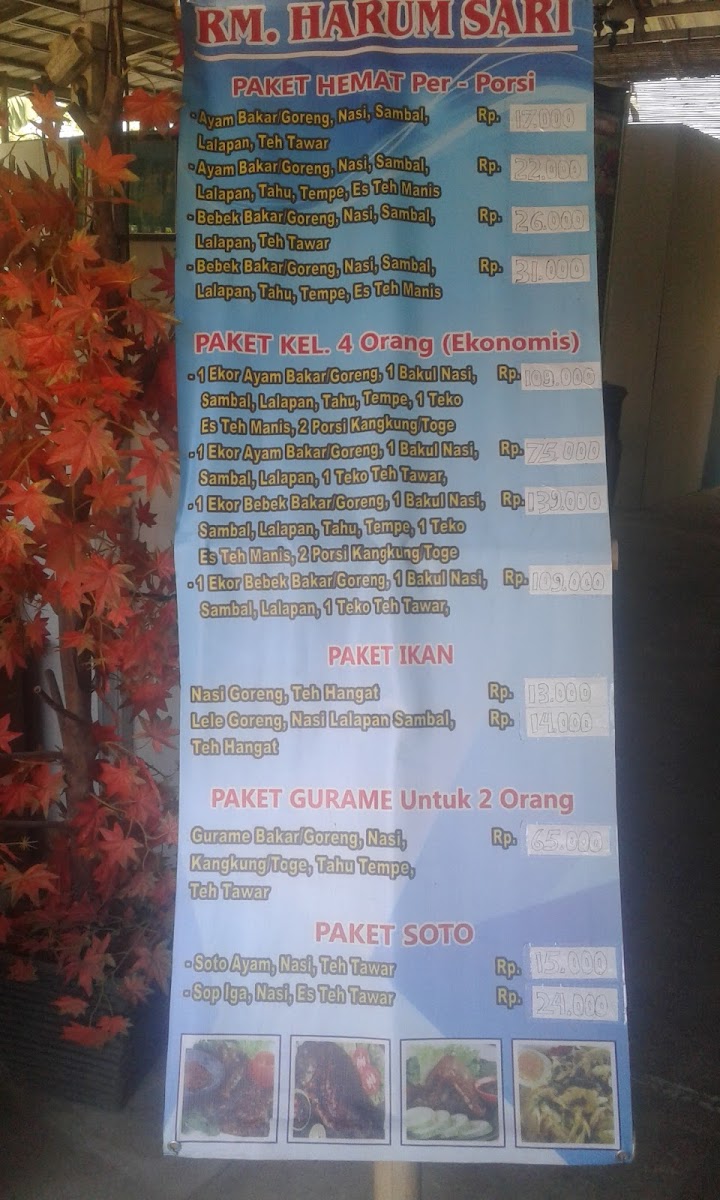 RM. HARUM SARI
PAKET HEMAT Per - Porsi
- Ayam Bakar/Goreng, Nasi, Sambal, Rp. 17.000
Lalapan, Teh Tawar
- Ayam Bakar/Goreng, Nasi, Sambal, Rp. 22.000
Lalapan, Tahu, Tempe, Es Teh Manis
- Bebek Bakar/Goreng, Nasi, Sambal, Rp. 26.000
Lalapan, Teh Tawar
- Bebek Bakar/Goreng, Nasi, Sambal, Rp. 31.000
Lalapan, Tahu, Tempe, Es Teh Manis
PAKET KEL. 4 Orang (Ekonomis)
- 1 Ekor Ayam Bakar/Goreng, 1 Bakul Nasi, Rp.
Sambal, Lalapan, Tahu, Tempe, 1 Teko
Es Teh Manis, 2 Porsi Kangkung/Toge
- 1 Ekor Ayam Bakar/Goreng, 1 Bakul Nasi, Rp. 75.000
Sambal, Lalapan, 1 Teko Teh Tawar,
- 1 Ekor Bebek Bakar/Goreng, 1 Bakul Nasi, Rp. 139.000
Sambal, Lalapan, Tahu, Tempe, 1 Teko
Es Teh Manis, 2 Porsi Kangkung/Toge
- 1 Ekor Bebek Bakar/Goreng, 1 Bakul Nasi, Rp. 109.000
Sambal, Lalapan, 1 Teko Teh Tawar,
PAKET IKAN
Nasi Goreng, Teh Hangat Rp. 13.000
Lele Goreng, Nasi Lalapan Sambal, Rp. 14.000
Teh Hangat
PAKET GURAME Untuk 2 Orang
Gurame Bakar/Goreng, Nasi, Rp. 65.000
Kangkung/Toge, Tahu Tempe,
Teh Tawar
PAKET SOTO
- Soto Ayam, Nasi, Teh Tawar Rp. 15.000
- Sop Iga, Nasi, Es Teh Tawar Rp. 24.000